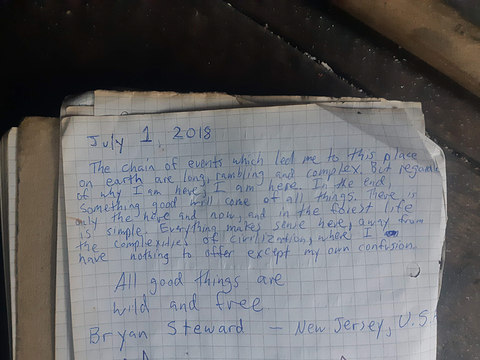 July 1 2018
The chain of events which led me to this place
on earth are long, rambling and complex. But regardl
of why I am here, I am here. In the end,
Something good will come of all things. There is
only the here and now, and in the forest life
is simple. Everything makes sense here, away from
the complexities of civilization, where I
have nothing to offer except my own confusion
All good things are
wild and free
Bryan Steward — New Jersey, U.S.